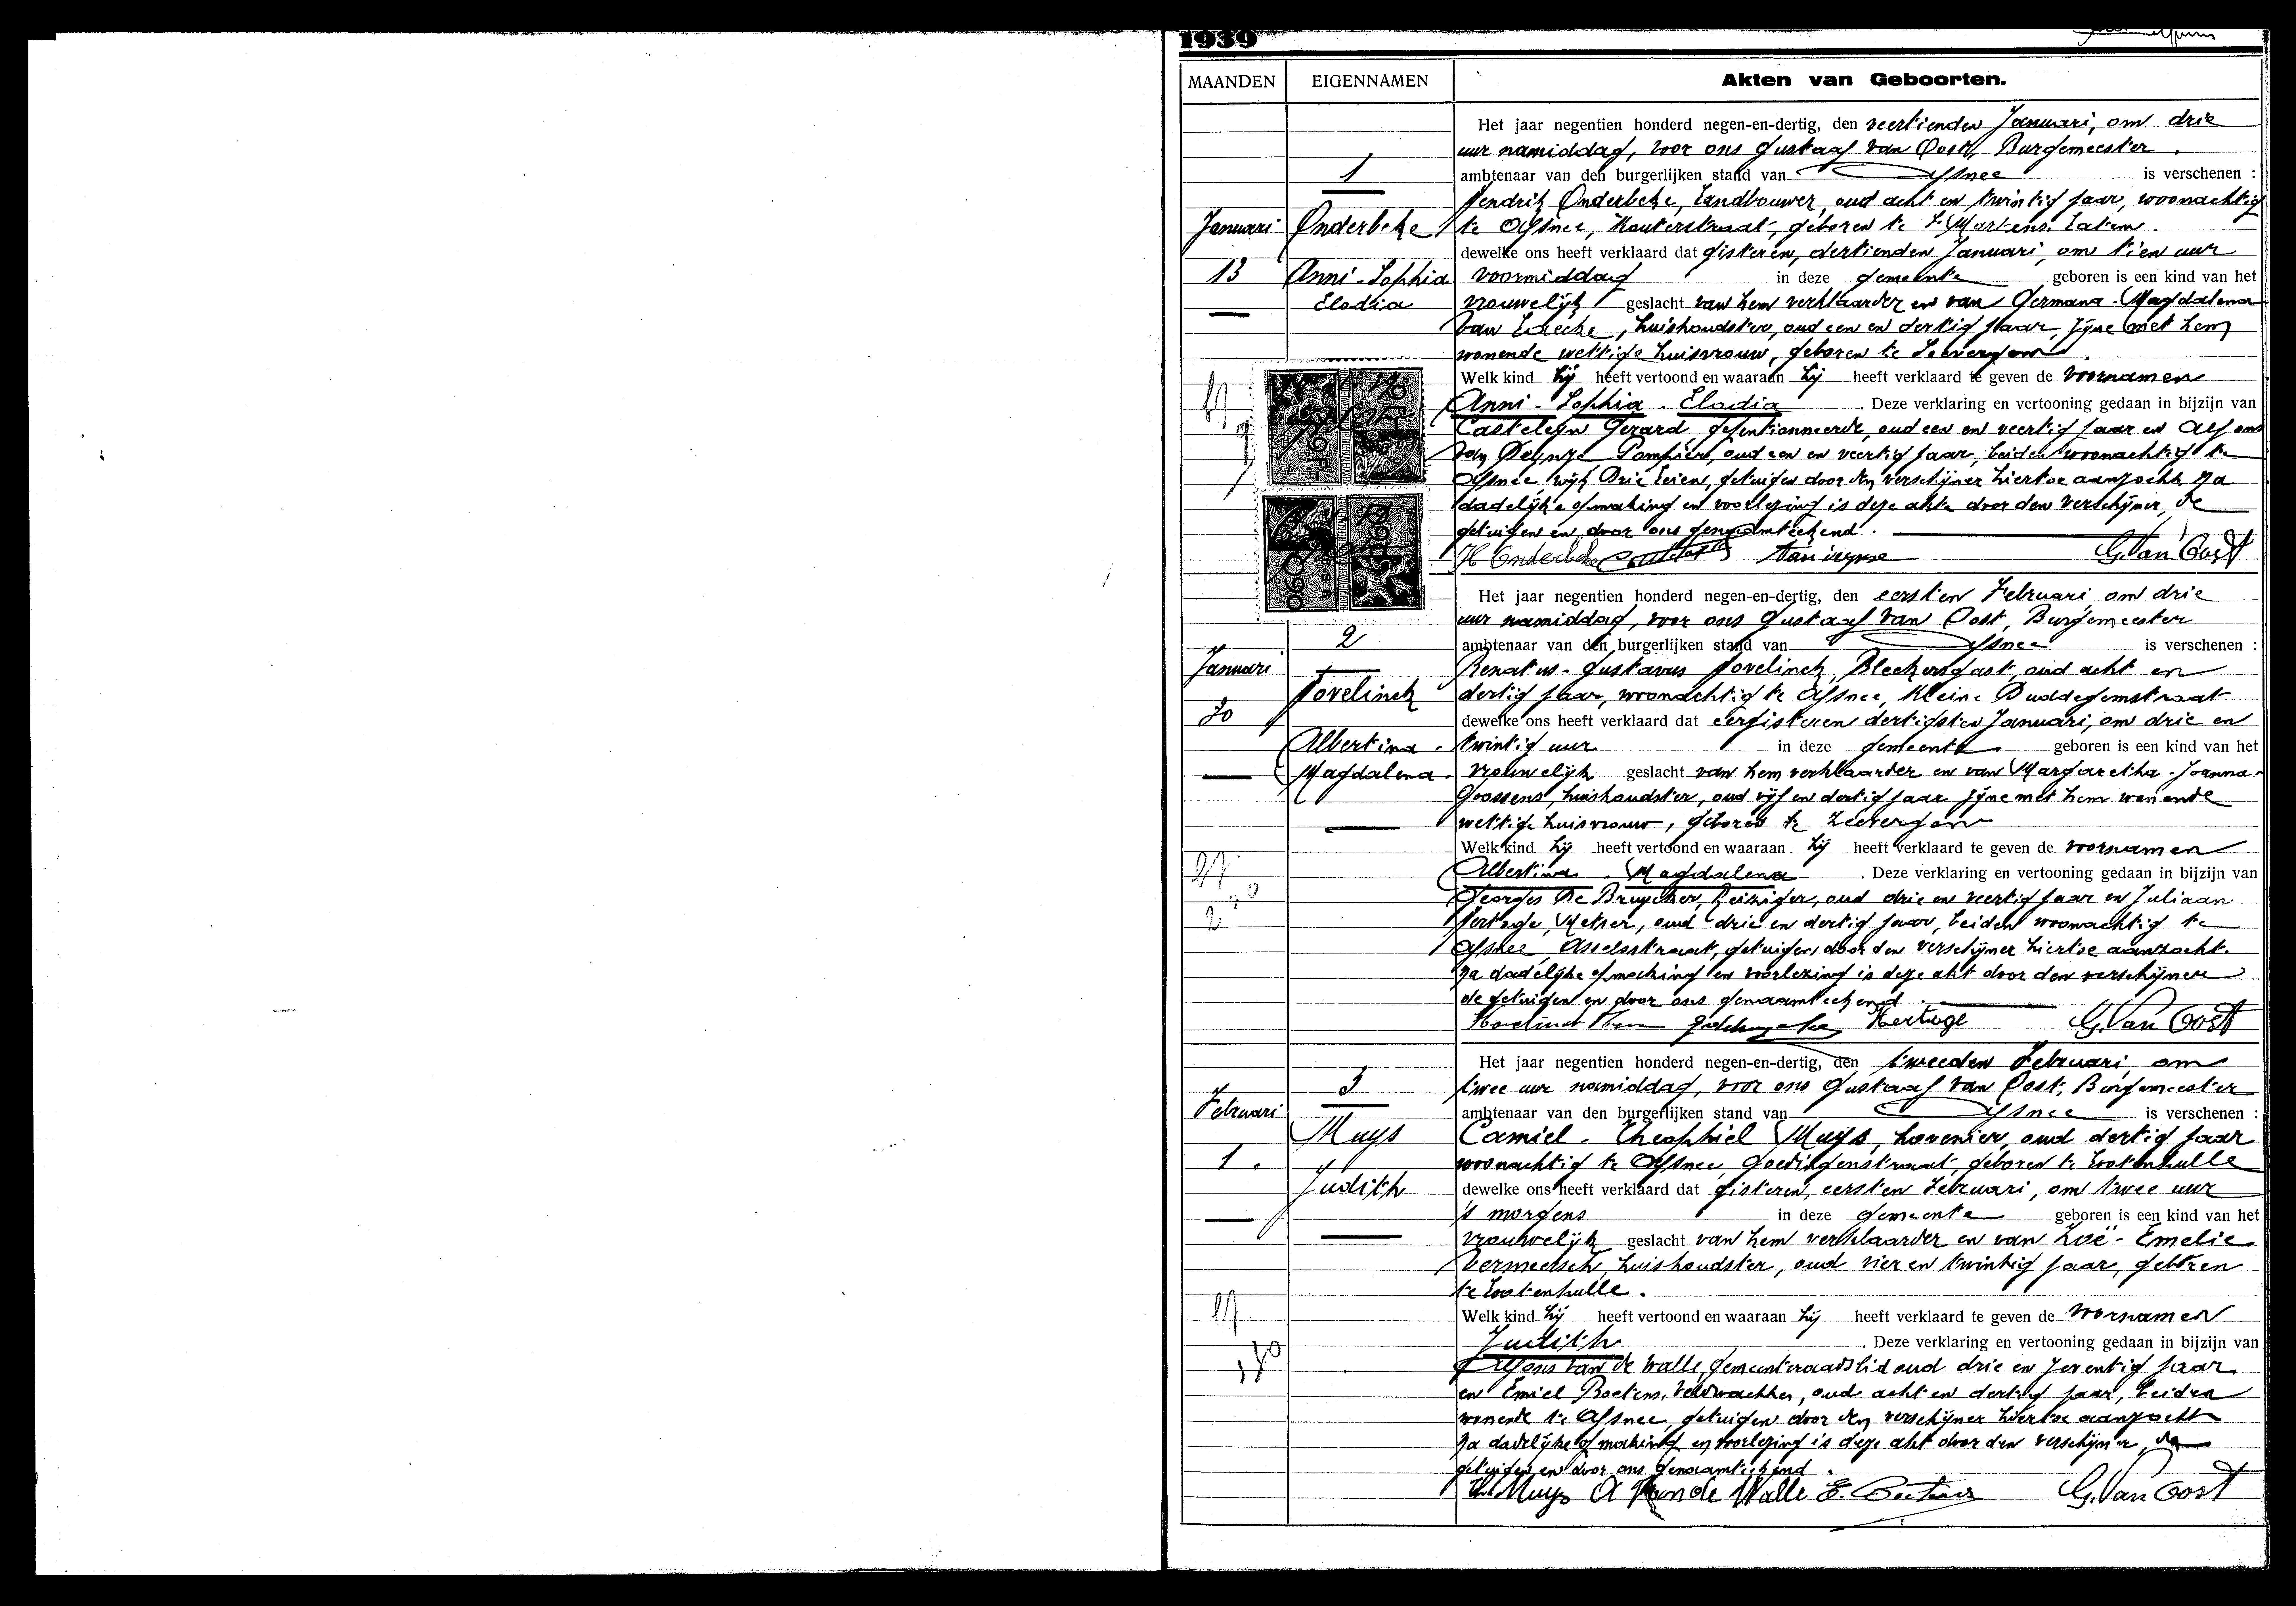 1939
MAANDEN EIGENNAMEN Akten van Geboorten.
Het jaar negentien honderd negen-en-dertig, den veertienden Januari, om drie
uur namiddag, voor ons Gustaaf Van Oost, Burgemeester
1
ambtenaar van den burgerlijken stand van Afsnee is verschenen :
Hendrik Onderbeke, Landbouwer, oud acht en twintig jaar, woonachtig
Januari Onderbeke te Afsnee, Kouterstraat, geboren te St Martens Latem
dewelke ons heeft verklaard dat gisteren, dertienden Januari, om tien uur
13 Anni-Sophia voormiddag in deze gemeente geboren is een kind van het
Elodia vrouwelijk geslacht van hem verklaarder en van Germana-Magdalena
Van Laecke, huishoudster, oud een en dertig jaar, zijne met hem
wonende wettige huisvrouw, geboren te Zeevergem
Welk kind hij heeft vertoond en waaraan hij heeft verklaard te geven de voornamen
Anni-Sophia-Elodia. Deze verklaring en vertooning gedaan in bijzijn van
Casteleyn Gerard gepentionneerde, oud een en veertig jaar en Alfons
Van Deynze Pompier, oud een en veertig jaar, beiden woonachtig te
Afsnee wijk Drie Leien, getuigen door den verschijner hiertoe aanzocht. Na
dadelijke opmaking en voorlezing is deze akte door den verschijner, de
getuigen en door ons genaamteekend.
H Onderbeke Van Deynse G. Van Oost
Het jaar negentien honderd negen-en-dertig, den eersten Februari, om drie
uur namiddag, voor ons Gustaaf Van Oost, Burgemeester
2
ambtenaar van den burgerlijken stand van Afsnee is verschenen :
Januari Renatus-Gustavus Hovelinck, Bleekersgast, oud acht en
Hovelinck dertig jaar, woonachtig te Afsnee, Kleine Duddegemstraat
30 dewelke ons heeft verklaard dat eergisteren dertigsten Januari, om drie en
Albertina- twintig uur in deze gemeente geboren is een kind van het
Magdalena. vrouwelijk geslacht van hem verklaarder en van Margaretha-Joanna-
Goossens, huishoudster, oud vijf en dertig jaar zijne met hem wonende
wettige huisvrouw, geboren te Zeevergem
Welk kind hij heeft vertoond en waaraan hij heeft verklaard te geven de voornamen
Albertina-Magdalena. Deze verklaring en vertooning gedaan in bijzijn van
Georges De Bruycker, Reiziger, oud drie en veertig jaar en Juliaan
Hertoge, Metser, oud drie en dertig jaar, beiden woonachtig te
Afsnee, Asselsstraat, getuigen door den verschijner hiertoe aanzocht.
Na dadelijke opmaking en voorlezing is deze akt door den verschijner
de getuigen en door ons genaamteekend.
Hovelinck Hertoge G. Van Oost
Het jaar negentien honderd negen-en-dertig, den tweeden Februari, om
3 twee uur namiddag, voor ons Gustaaf Van Oost, Burgemeester
Februari ambtenaar van den burgerlijken stand van Afsnee is verschenen :
Muys Camiel-Theophiel Muys, hovenier, oud dertig jaar
1. woonachtig te Afsnee, Goedingenstraat, geboren te Lootenhulle
Judith dewelke ons heeft verklaard dat gisteren, eersten Februari, om twee uur
's morgens in deze gemeente geboren is een kind van het
vrouwelijk geslacht van hem verklaarder en van Zoë-Emelie
Vermeesch, huishoudster, oud vier en twintig jaar, geboren
te Lootenhulle.
Welk kind hij heeft vertoond en waaraan hij heeft verklaard te geven de voornamen
Judith. Deze verklaring en vertooning gedaan in bijzijn van
Alfons Van de Walle, gemeenteraadslid oud drie en zeventig jaar
en Emiel Boetens, veldwachter, oud acht en dertig jaar, beiden
wonende te Afsnee, getuigen door den verschijner hiertoe aanzocht
Na dadelijke opmaking en voorlezing is deze akt door den verschijner, de
getuigen en door ons genaamteekend.
Muys A Van de Walle E. Boetens G. Van Oost